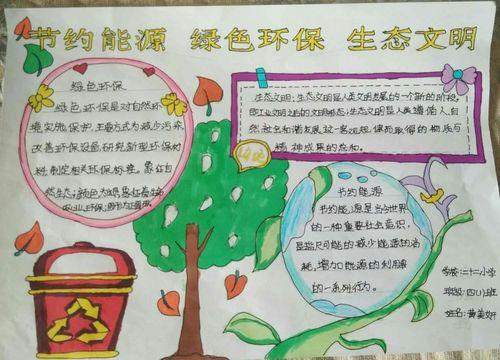 节约能源 绿色环保 生态文明
绿色环保
绿色环保是对自然环
境实施保护,主要方式为减少污染
改善环保设施,研究新型环保材
料,制定相关环保标准。象征自
然生态;颜色为绿易红为辅
生态文明:生态文明是人类文明发展的一个新的阶段,
即工业文明之后的文明形态;生态文明是人类遵循人、自
然、社会和谐发展这一客观规律而取得的物质与
精神成果的总和。
节约能源
节约能源是当今世界
的一种重要社会意识,
是指尽可能的减少能源的消
耗,增加能源的利用率
的一系列行为。
学校:二十二小学
班级:四(1)班
姓名:黄美妍